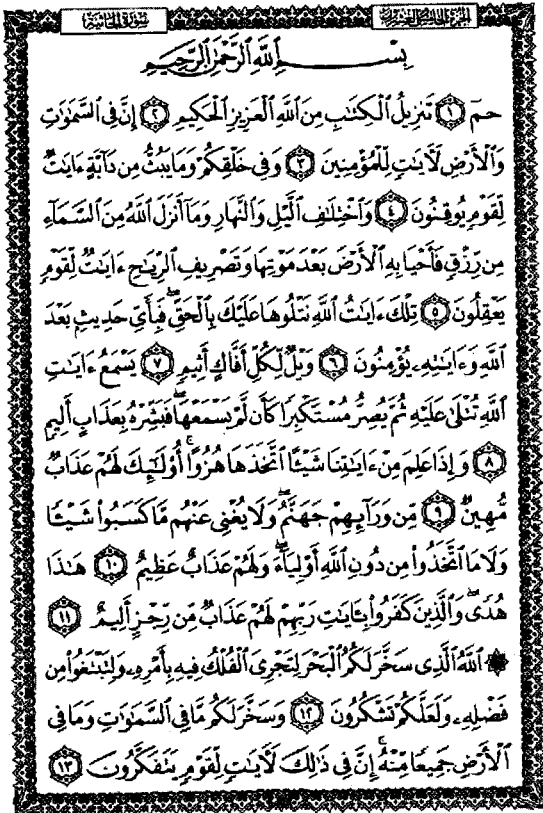 سورة الجاثية الجزء الخامس والعشرون
بِسْمِ اللَّهِ الرَّحْمَٰنِ الرَّحِيمِ
حمٓ ١ تَنزِيلُ ٱلْكِتَٰبِ مِنَ ٱللَّهِ ٱلْعَزِيزِ ٱلْحَكِيمِ ٢ إِنَّ فِى ٱلسَّمَٰوَٰتِ
وَٱلْأَرْضِ لَءَايَٰتٍ لِّلْمُؤْمِنِينَ ٣ وَفِى خَلْقِكُمْ وَمَا يَبُثُّ مِن دَآبَّةٍ ءَايَٰتٌ
لِّقَوْمٍ يُوقِنُونَ ٤ وَٱخْتِلَٰفِ ٱلَّيْلِ وَٱلنَّهَارِ وَمَآ أَنزَلَ ٱللَّهُ مِنَ ٱلسَّمَآءِ
مِن رِّزْقٍ فَأَحْيَا بِهِ ٱلْأَرْضَ بَعْدَ مَوْتِهَا وَتَصْرِيفِ ٱلرِّيَٰحِ ءَايَٰتٌ لِّقَوْمٍ
يَعْقِلُونَ ٥ تِلْكَ ءَايَٰتُ ٱللَّهِ نَتْلُوهَا عَلَيْكَ بِٱلْحَقِّ ۖ فَبِأَىِّ حَدِيثٍۭ بَعْدَ
ٱللَّهِ وَءَايَٰتِهِۦ يُؤْمِنُونَ ٦ وَيْلٌ لِّكُلِّ أَفَّاكٍ أَثِيمٍ ٧ يَسْمَعُ ءَايَٰتِ
ٱللَّهِ تُتْلَىٰ عَلَيْهِ ثُمَّ يُصِرُّ مُسْتَكْبِرًا كَأَن لَّمْ يَسْمَعْهَا ۖ فَبَشِّرْهُ بِعَذَابٍ أَلِيمٍ
٨ وَإِذَا عَلِمَ مِنْ ءَايَٰتِنَا شَيْـًٔا ٱتَّخَذَهَا هُزُوًا ۚ أُو۟لَٰٓئِكَ لَهُمْ عَذَابٌ
مُّهِينٌ ٩ مِّن وَرَآئِهِمْ جَهَنَّمُ ۖ وَلَا يُغْنِى عَنْهُم مَّا كَسَبُوا۟ شَيْـًٔا
وَلَا مَا ٱتَّخَذُوا۟ مِن دُونِ ٱللَّهِ أَوْلِيَآءَ ۖ وَلَهُمْ عَذَابٌ عَظِيمٌ ١٠ هَٰذَا
هُدًى ۖ وَٱلَّذِينَ كَفَرُوا۟ بِـَٔايَٰتِ رَبِّهِمْ لَهُمْ عَذَابٌ مِّن رِّجْزٍ أَلِيمٌ ١١
۞ ٱللَّهُ ٱلَّذِى سَخَّرَ لَكُمُ ٱلْبَحْرَ لِتَجْرِىَ ٱلْفُلْكُ فِيهِ بِأَمْرِهِۦ وَلِتَبْتَغُوا۟ مِن
فَضْلِهِۦ وَلَعَلَّكُمْ تَشْكُرُونَ ١٢ وَسَخَّرَ لَكُم مَّا فِى ٱلسَّمَٰوَٰتِ وَمَا فِى
ٱلْأَرْضِ جَمِيعًا مِّنْهُ ۚ إِنَّ فِى ذَٰلِكَ لَءَايَٰتٍ لِّقَوْمٍ يَتَفَكَّرُونَ ١٣